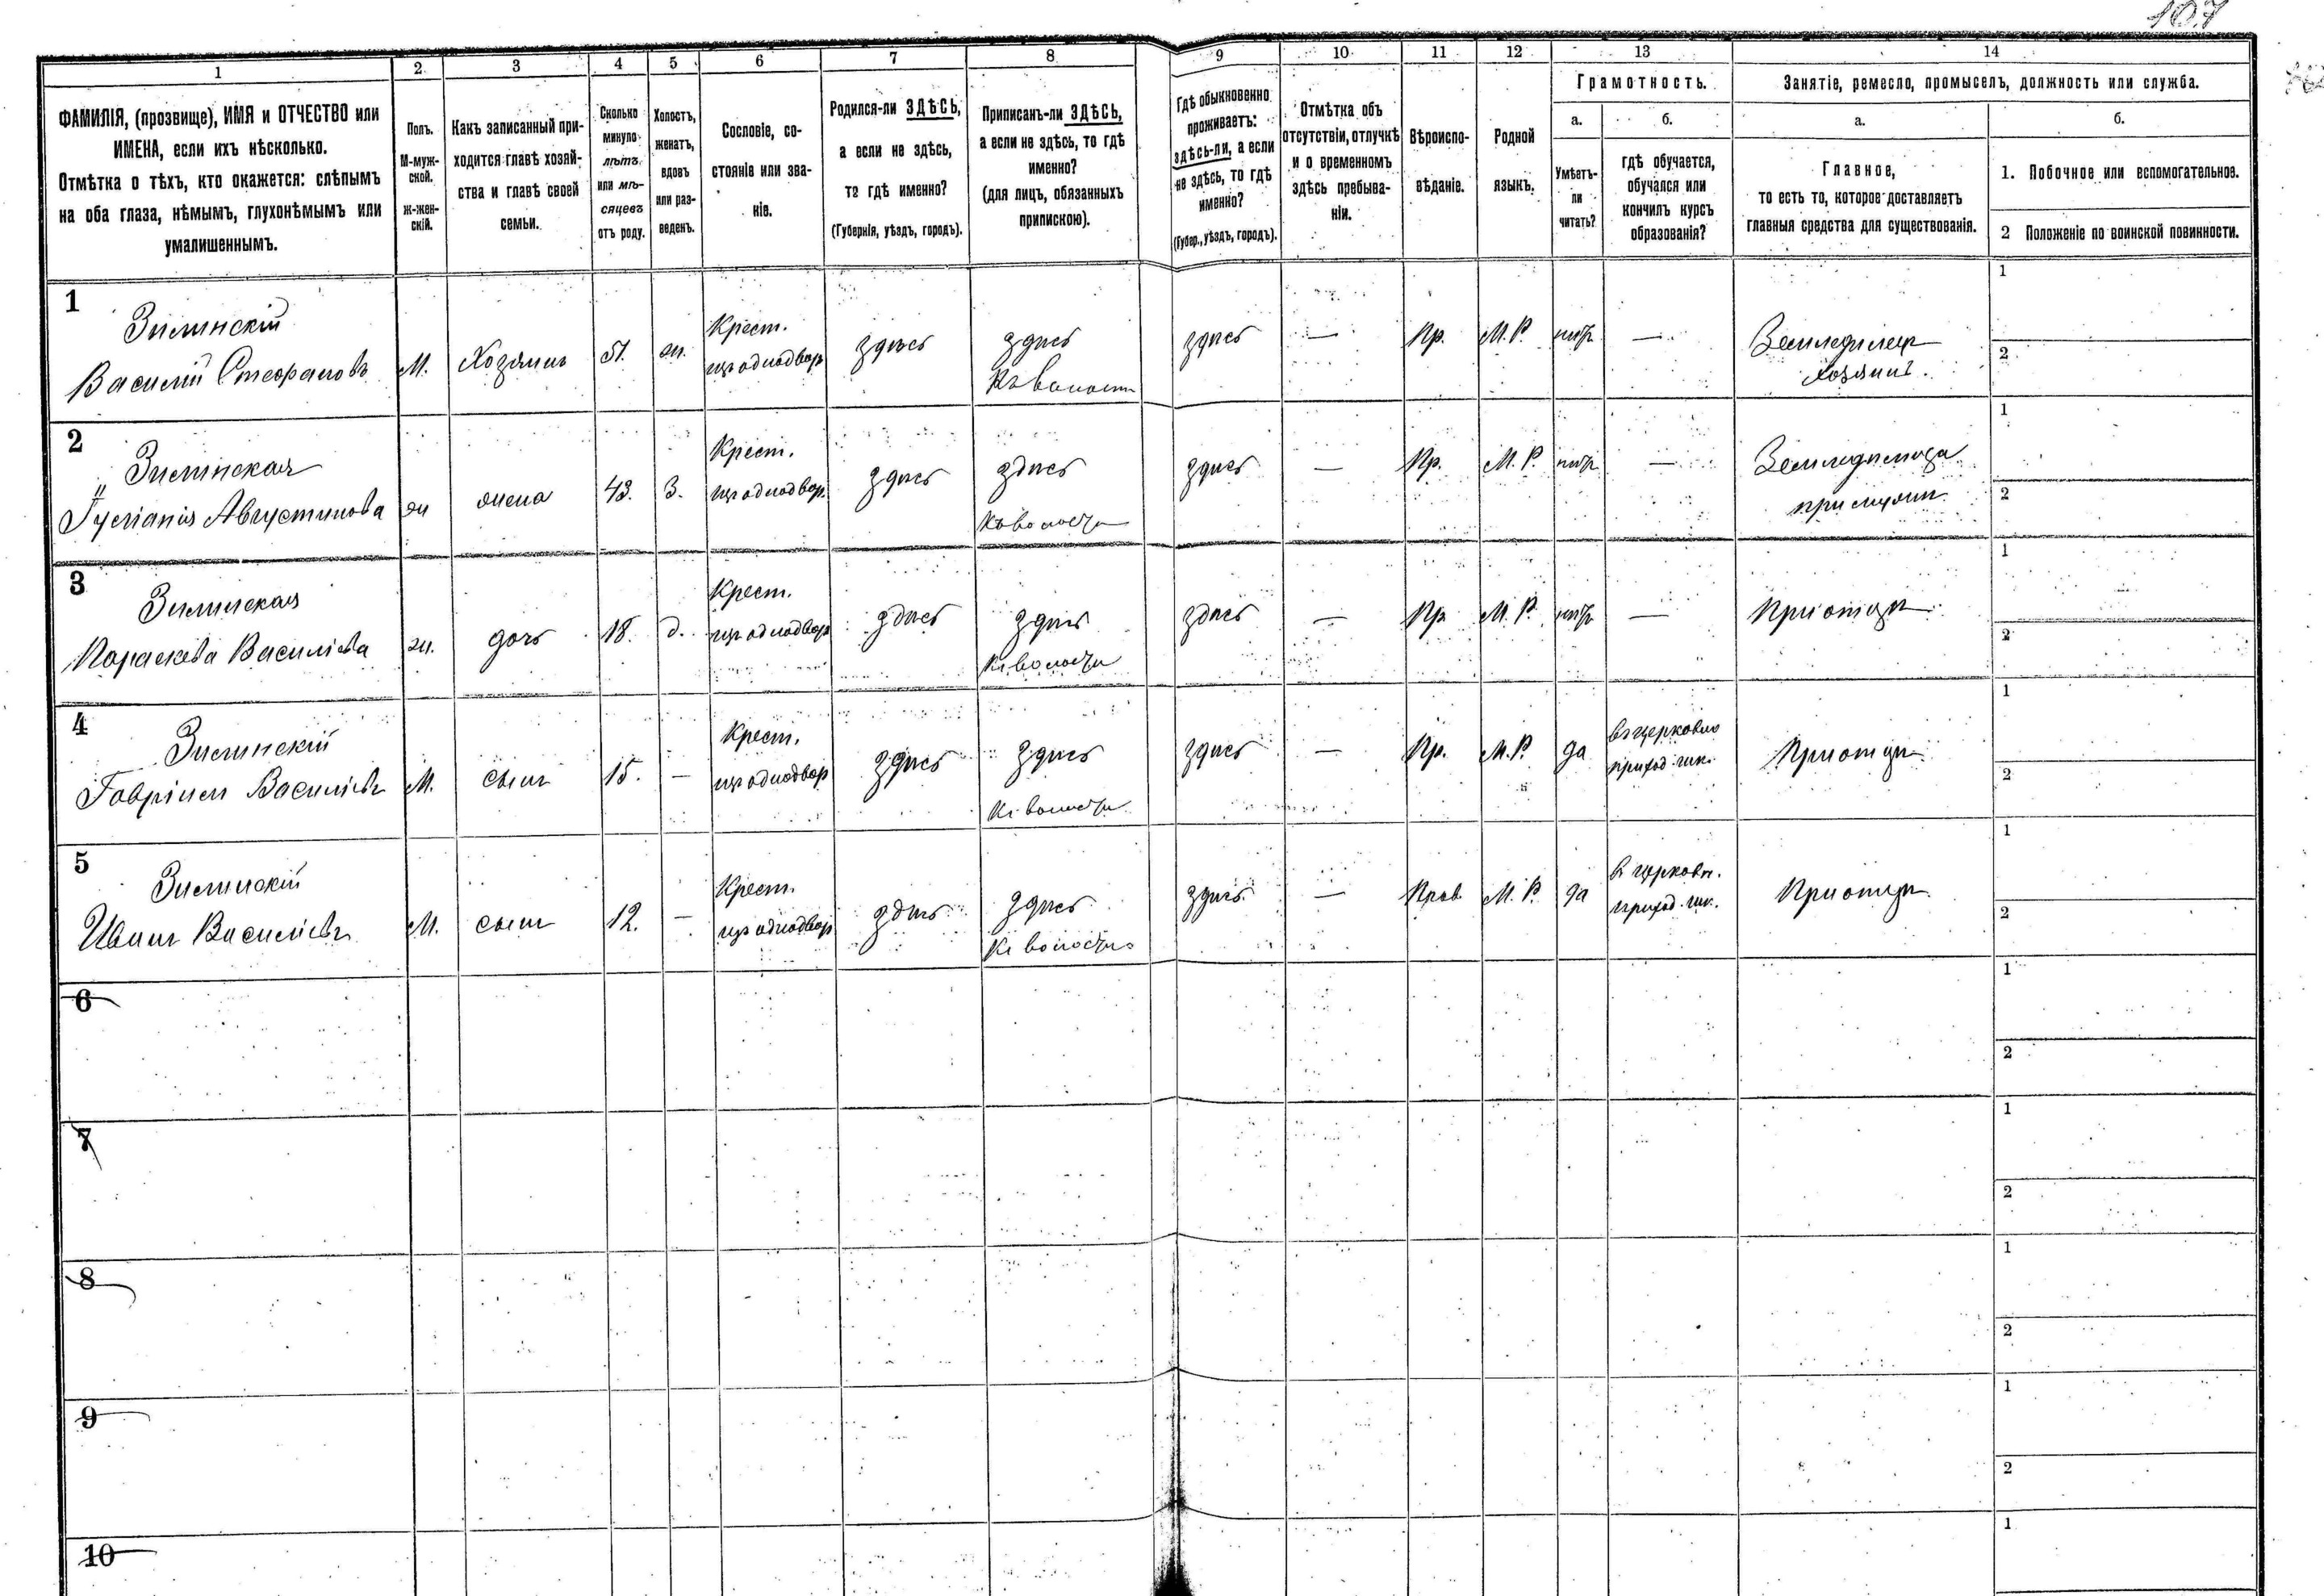 107
1
2
3
4
5
6
7
8
9
10
11
12
13
14
ФАМИЛІЯ, (прозвище), ИМЯ и ОТЧЕСТВО или
ИМЕНА, если ихъ нѣсколько.
Отмѣтка о тѣхъ, кто окажется: слѣпымъ
на оба глаза, нѣмымъ, глухонѣмымъ или
умалишеннымъ.
Полъ.
М-муж-
ской.
ж-жен-
скій.
Какъ записанный при-
ходится главѣ хозяй-
ства и главѣ своей
семьи.
Сколько
минуло
лѣтъ
или мѣ-
сяцевъ
отъ роду.
Холостъ,
женатъ,
вдовъ
или раз-
веденъ.
Сословіе, со-
стояніе или зва-
ніе.
Родился-ли ЗДѢСЬ,
а если не здѣсь,
то гдѣ именно?
(Губернія, уѣздъ, городъ).
Приписанъ-ли ЗДѢСЬ,
а если не здѣсь, то гдѣ
именно?
(для лицъ, обязанныхъ
припискою).
Гдѣ обыкновенно
проживаетъ:
здѣсь-ли, а если
не здѣсь, то гдѣ
именно?
(Губер., уѣздъ, городъ).
Отмѣтка объ
отсутствіи, отлучкѣ
и о временномъ
здѣсь пребыва-
ніи.
Вѣроиспо-
вѣданіе.
Родной
языкъ.
Грамотность.
а.
Умѣетъ-
ли
читать?
б.
гдѣ обучается,
обучался или
кончилъ курсъ
образованія?
Занятіе, ремесло, промыселъ, должность или служба.
а.
Главное,
то есть то, которое доставляетъ
главныя средства для существованія.
б.
1. Побочное или вспомогательное.
2 Положеніе по воинской повинности.
1
Зилинскій
Василій Стефановъ
М.
Хозяинъ
51.
ж.
Крест.
изъ однодвор
здѣсь
здѣсь
къ волости
здѣсь
—
Пр.
М.Р.
нѣтъ
—
Земледѣлецъ
хозяинъ.
1
2
2
Зилинская
Августинова
ж
жена
43.
З.
Крест.
изъ однодвор.
здѣсь
здѣсь
къ волости
здѣсь
—
Пр.
М.Р.
нѣтъ
—
Земледѣлица
при мужѣ
1
2
3
Зилинская
Параскева Василіева
ж.
дочь
18.
д.
Крест.
изъ однодвор
здѣсь
здѣсь
къ волости
здѣсь
—
Пр
М.Р.
нѣтъ
—
При отцѣ
1
2
4
Зилинскій
Гавріилъ Василіевъ
М.
сынъ
15.
—
Крест.
изъ однодвор
здѣсь
здѣсь
къ волости
здѣсь
—
Пр.
М.Р.
да
въ церковно
приход. шк.
При отцѣ
1
2
5
Зилинскій
Иванъ Василіевъ
М.
сынъ
12.
—
Крест.
изъ однодвор
здѣсь
здѣсь
къ волости
здѣсь
—
Прав.
М.Р.
да
въ церковн.
приход. шк.
При отцѣ
1
2
6
1
2
7
1
2
8
1
2
9
1
2
10
1